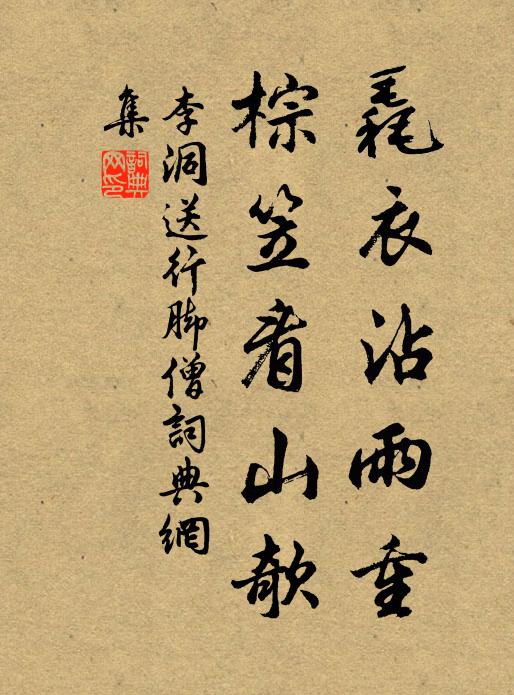 毳衣沾雨重
棕笠看山欹
李洞送行脚僧詞典網
集
詞典
网印